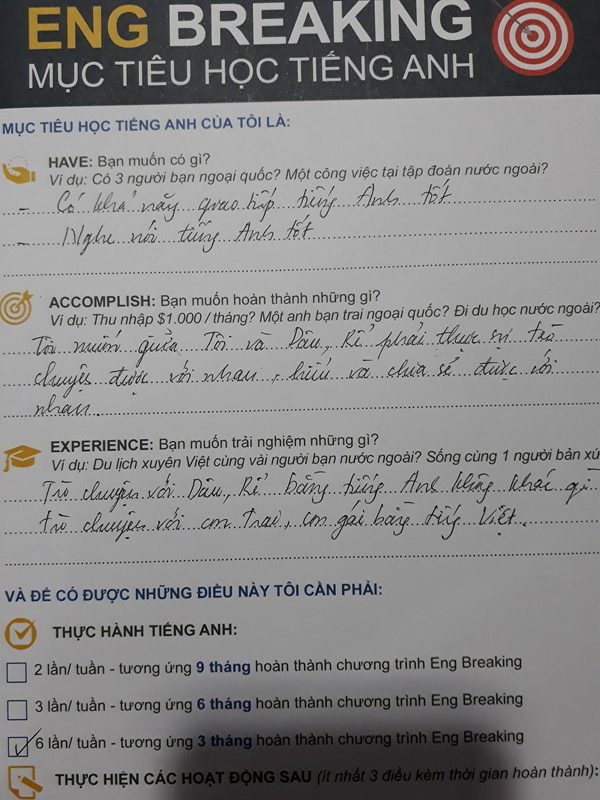 ENG BREAKING
MỤC TIÊU HỌC TIẾNG ANH
MỤC TIÊU HỌC TIẾNG ANH CỦA TÔI LÀ:
HAVE: Bạn muốn có gì?
Ví dụ: Có 3 người bạn ngoại quốc? Một công việc tại tập đoàn nước ngoài?
- Có khả năng giao tiếp tiếng Anh tốt
- Nghe nói tiếng Anh tốt
ACCOMPLISH: Bạn muốn hoàn thành những gì?
Ví dụ: Thu nhập $1.000 / tháng? Một anh bạn trai ngoại quốc? Đi du học nước ngoài?
Tôi muốn giữa Tôi và Dâu, Rể phải thực sự trò
chuyện được với nhau, hiểu và chia sẻ được với
nhau.
EXPERIENCE: Bạn muốn trải nghiệm những gì?
Ví dụ: Du lịch xuyên Việt cùng vài người bạn nước ngoài? Sống cùng 1 người bản xứ
Trò chuyện với Dâu, Rể bằng tiếng Anh không khác gì
trò chuyện với con trai, con gái bằng tiếng Việt.
VÀ ĐỂ CÓ ĐƯỢC NHỮNG ĐIỀU NÀY TÔI CẦN PHẢI:
THỰC HÀNH TIẾNG ANH:
2 lần/ tuần - tương ứng 9 tháng hoàn thành chương trình Eng Breaking
3 lần/ tuần - tương ứng 6 tháng hoàn thành chương trình Eng Breaking
6 lần/ tuần - tương ứng 3 tháng hoàn thành chương trình Eng Breaking
THỰC HIỆN CÁC HOẠT ĐỘNG SAU (ít nhất 3 điều kèm thời gian hoàn thành):